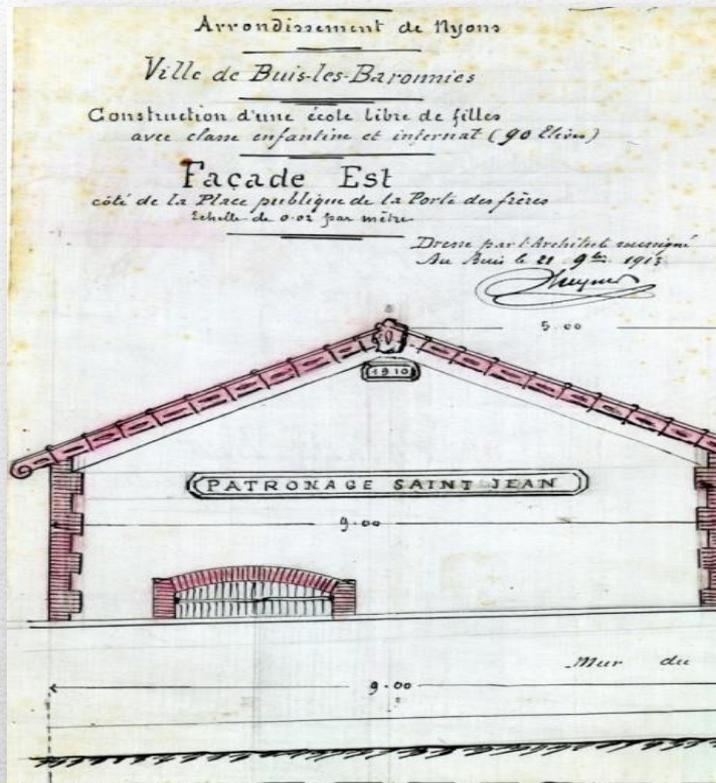 Arrondissement de Nyons
Ville de Buis-les-Baronnies
Construction d'une école libre de filles
avec classe enfantine et internat (90 Elèves)
Façade Est
côté de la Place publique de la Porte des frères
Echelle de 0.02 par mètre
Dressé par l'Architecte soussigné
Au Buis le 21 9bre 1913
5.00
1910
PATRONAGE SAINT JEAN
9.00
Mur du
9.00